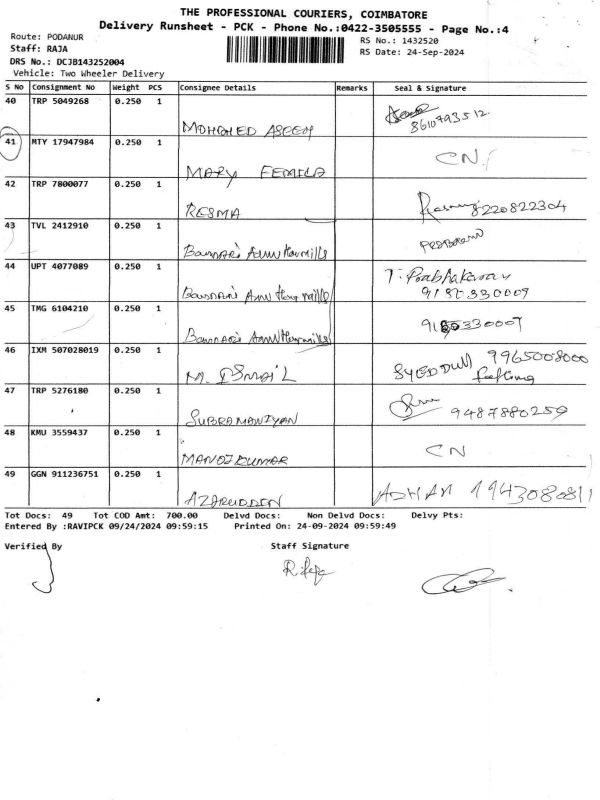 THE PROFESSIONAL COURIERS, COIMBATORE
Delivery Runsheet - PCK - Phone No.:0422-3505555 - Page No.:4
Route: PODANUR
RS No.: 1432520
Staff: RAJA
RS Date: 24-Sep-2024
DRS No.: DCJB143252004
Vehicle: Two Wheeler Delivery
S No Consignment No Weight PCS Consignee Details Remarks Seal & Signature
40 TRP 5049268 0.250 1 MOHAMED ASEEM 8610793512
41 MTY 17947984 0.250 1 MARY FEMILA CN
42 TRP 7800077 0.250 1 RESMA 8220822304
43 TVL 2412910 0.250 1 Bannari Amm
44 UPT 4077089 0.250 1 Bannari Amm T. Prabhakaran
9180330009
45 TMG 6104210 0.250 1 Bannari Amm
46 IXM 507028019 0.250 1 M. ISMAIL SYED 9965008000
47 TRP 5276180 0.250 1 SUBRAMANIYAN 9487880259
48 KMU 3559437 0.250 1 MANOJKUMAR CN
49 GGN 911236751 0.250 1 AZARUDDEN
Tot Docs: 49 Tot COD Amt: 700.00 Delvd Docs: Non Delvd Docs: Delvy Pts:
Entered By :RAVIPCK 09/24/2024 09:59:15 Printed On: 24-09-2024 09:59:49
Verified By Staff Signature